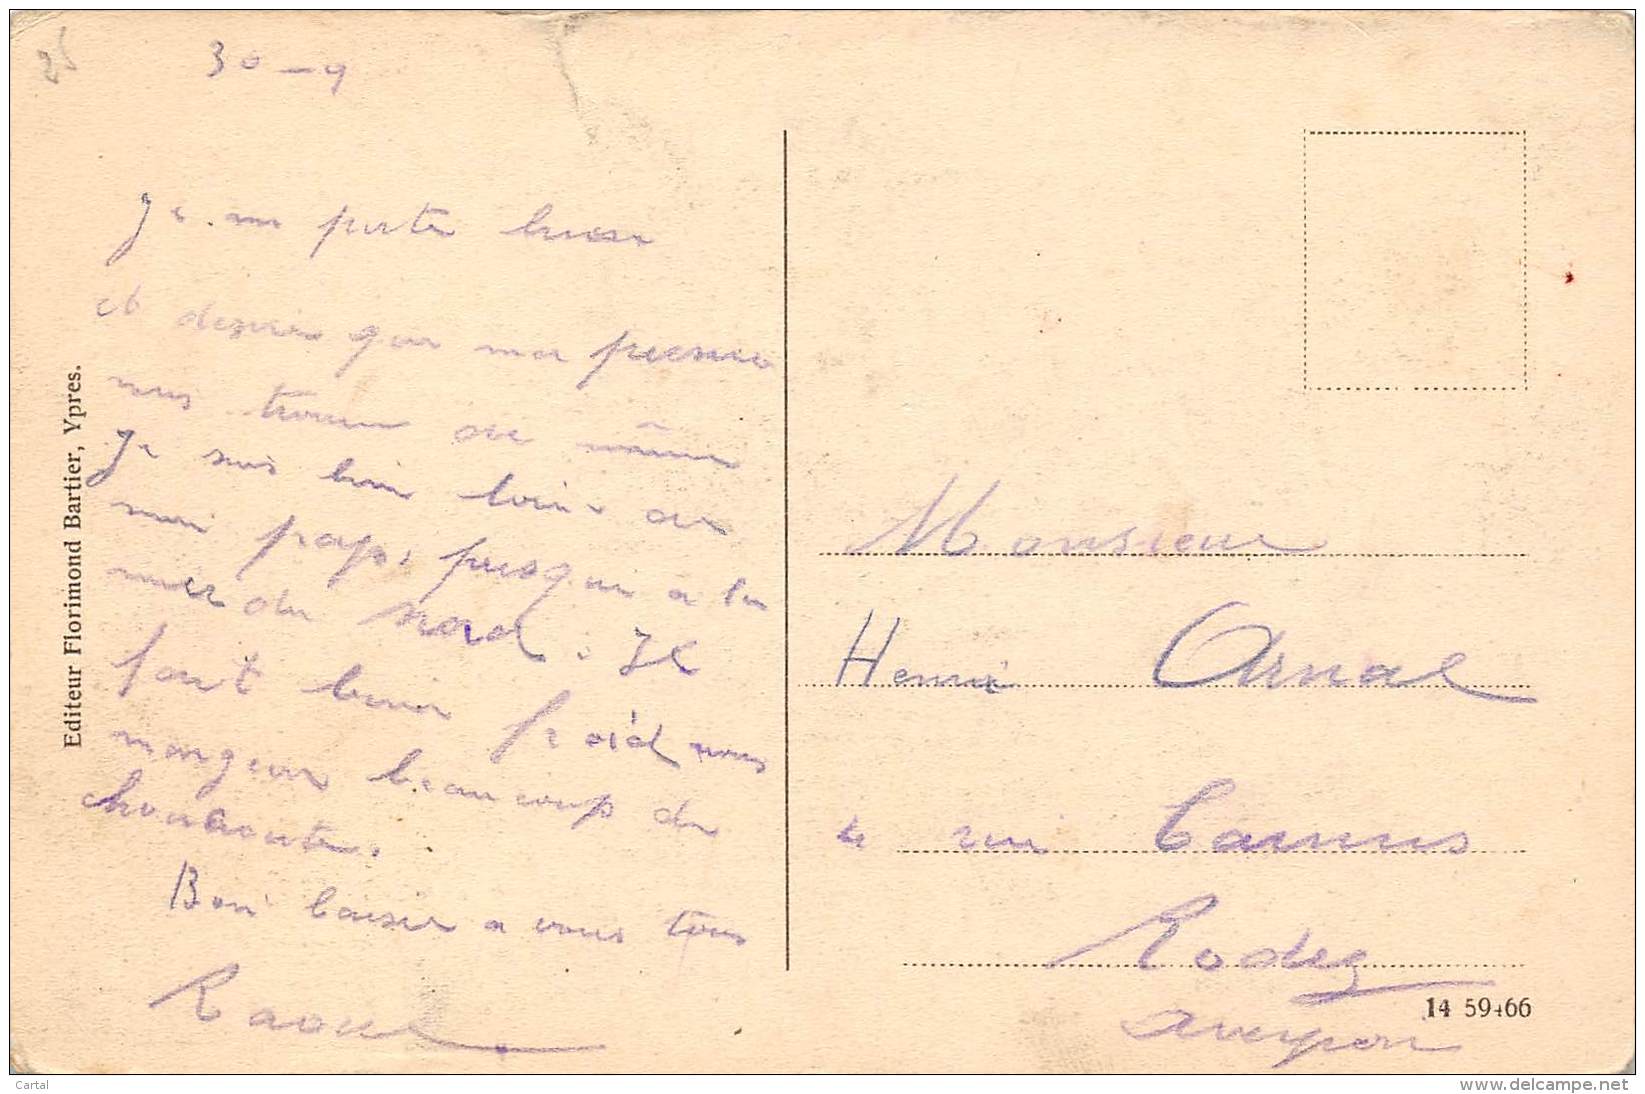 25
30 - 9
Je me porte bien
et desire que ma presente
vous trouve de même
Je suis bien loin de
mon pays, presque a la
mer du Nord. Il
fait bien froid nous
mangeons beaucoup de
choucroute.
Bon baiser a vous tous
Raoul
Editeur Florimond Bartier, Ypres.
Monsieur
Henri Arnal
4 rue Camus
Rodez
Aveyron
14 59466
Cartal
www.delcampe.net